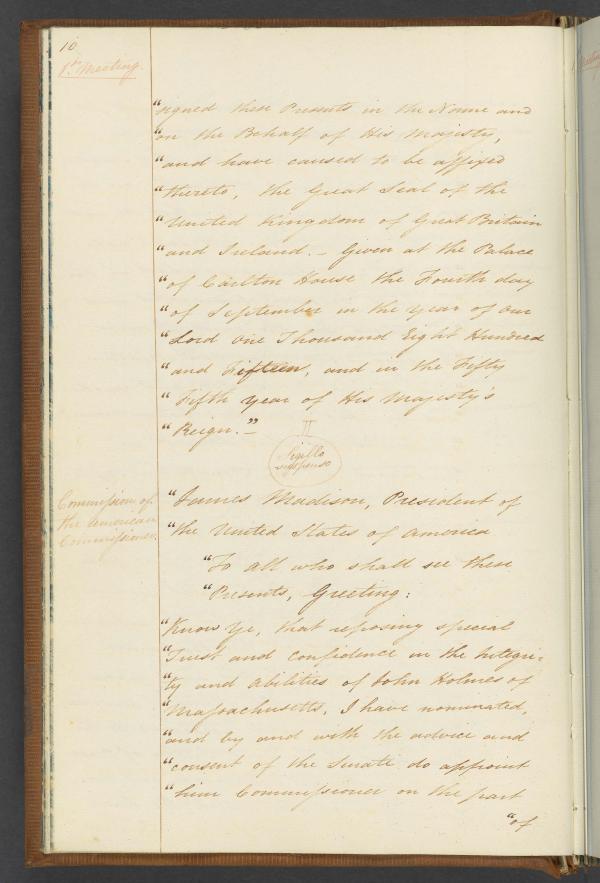 10
1st Meeting.
"signed these Presents in the Name and
"on the Behalf of His Majesty,
"and have caused to be affixed
"thereto, the Great Seal of the
"United Kingdom of Great Britain
"and Ireland. – Given at the Palace
"of Carlton House the Fourth day
"of September in the year of our
"Lord One Thousand Eight Hundred
"and Fifteen, and in the Fifty
"Fifth year of His Majesty's
"Reign."–
Sigillo
suspenso
Commission of
the American
Commissioner.
"James Madison, President of
"the United States of America
"To all who shall see these
"Presents, Greeting:
"Know Ye, that reposing special
"Trust and Confidence in the Integri-
"ty and Abilities of John Holmes of
"Massachusetts, I have nominated,
"and by and with the advice and
"consent of the Senate do appoint
"him Commissioner on the part
"of